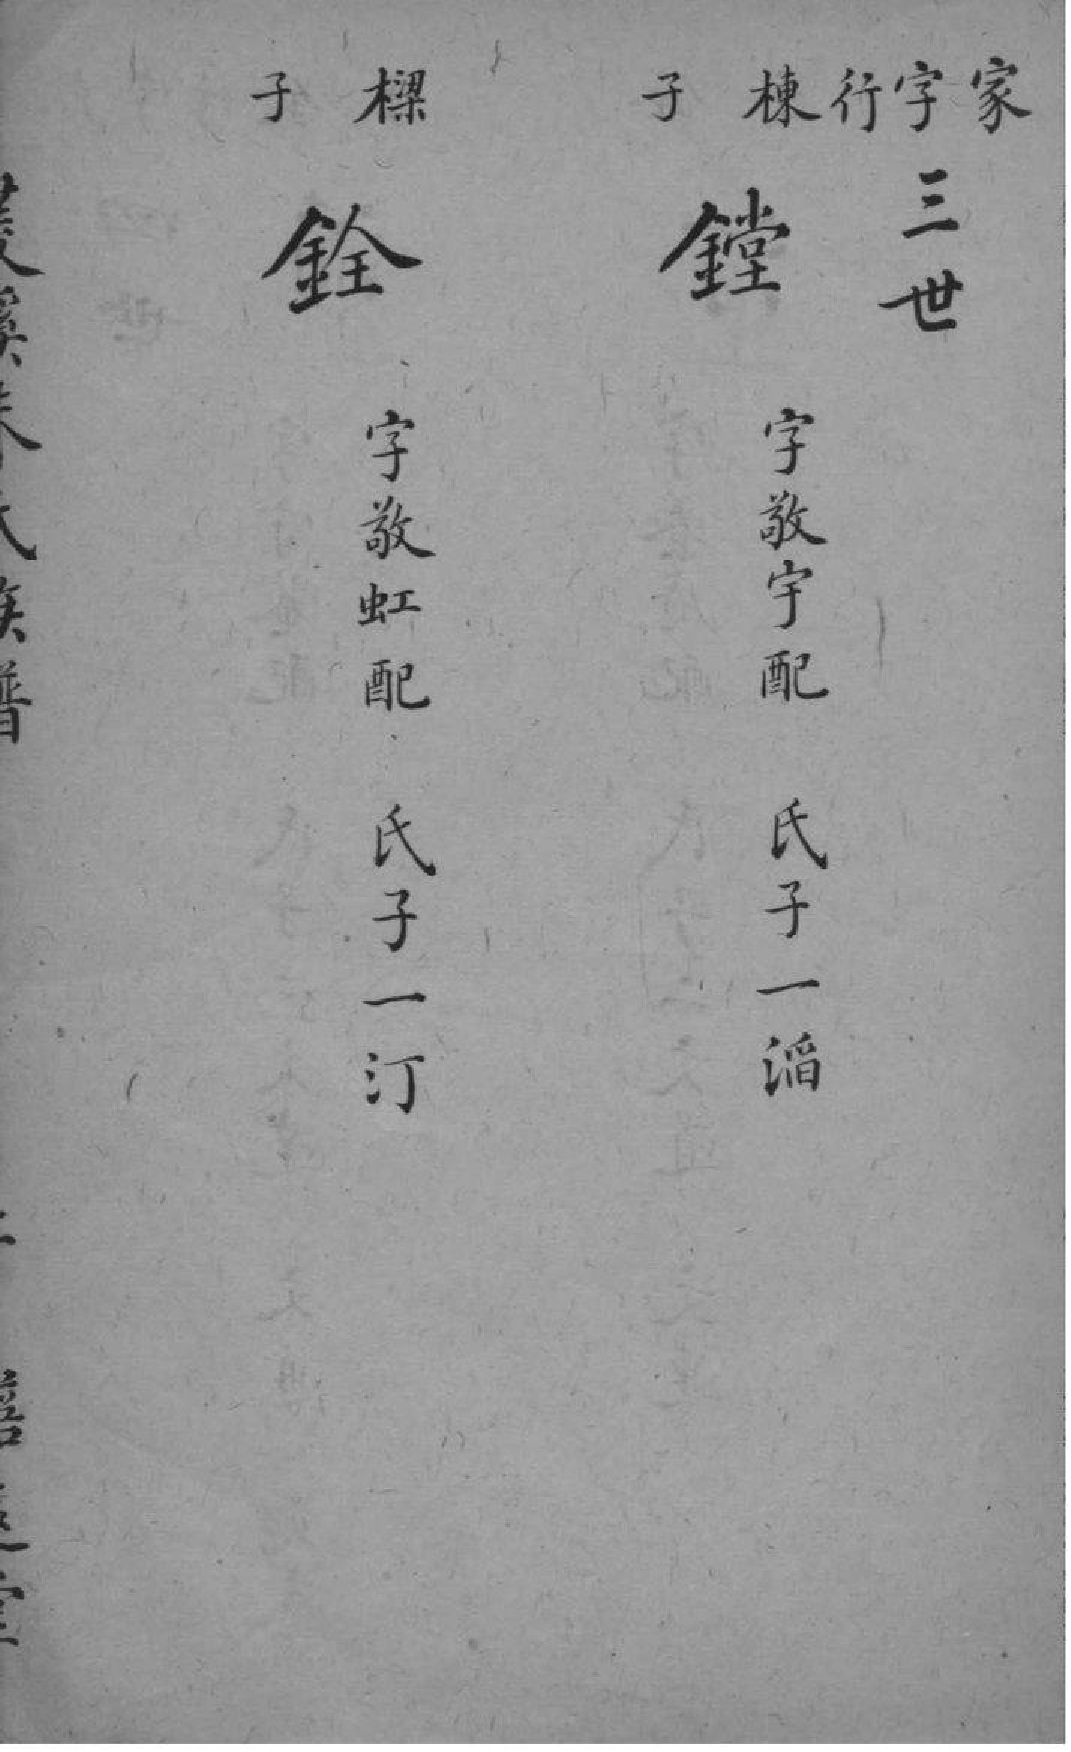 家字行
三世
棟子
鏜
字敬宇配 氏子一滔
樑子
銓
字敬虹配 氏子一汀
氏族譜